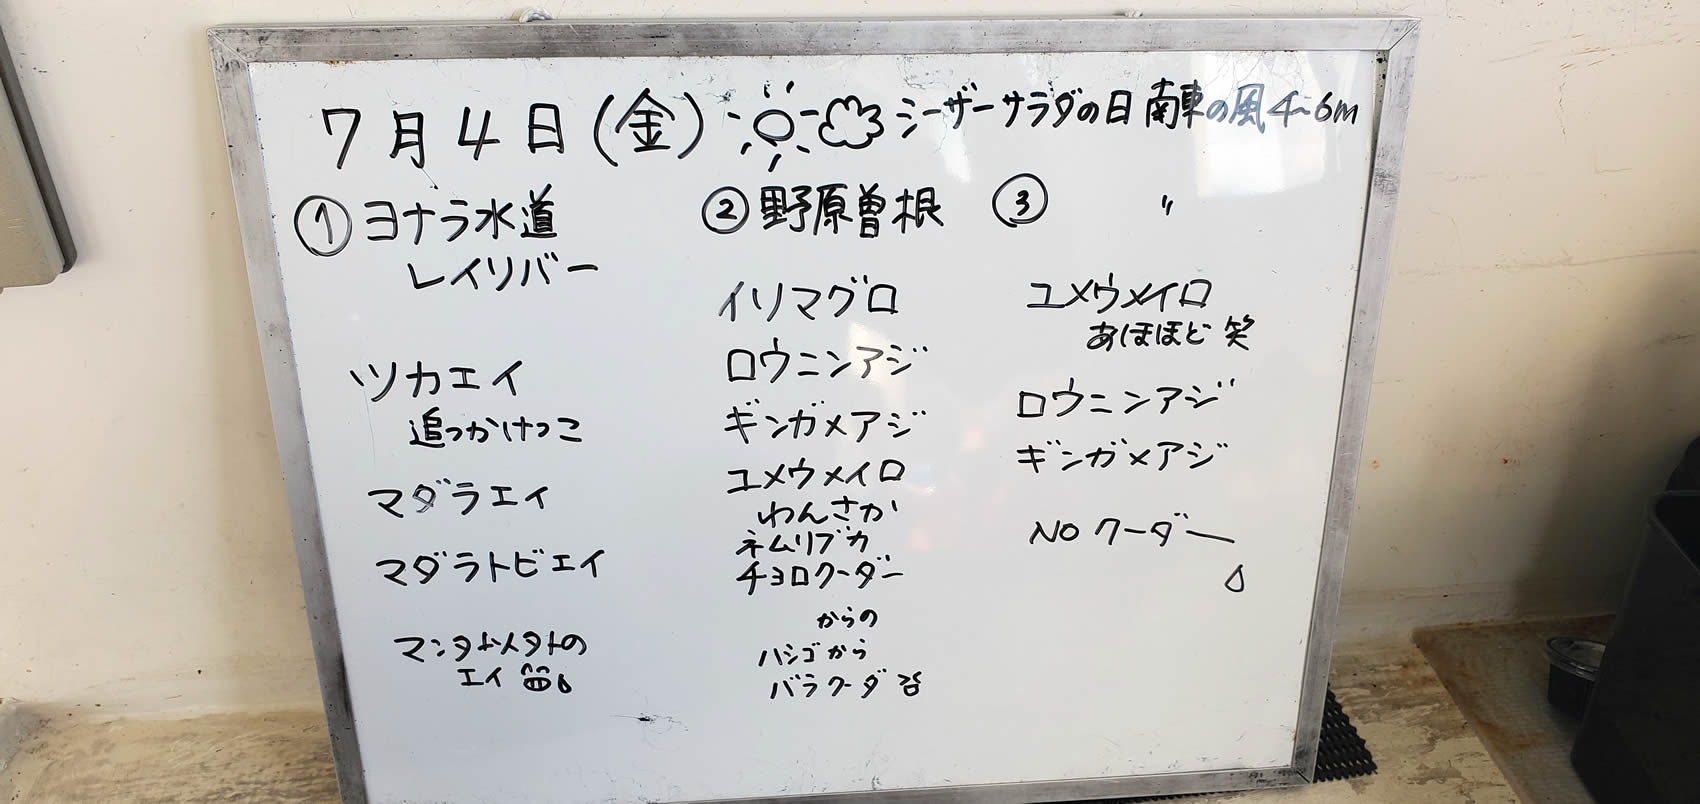 7月4日(金) シーザーサラダの日 南東の風4~6m
① ヨナラ水道
レイリバー
ツカエイ
追っかけっこ
マダラエイ
マダラトビエイ
マンタ以外の
エイ
② 野原曽根
イソマグロ
ロウニンアジ
ギンガメアジ
ユメウメイロ
わんさか
ネムリブカ
チョロクーダー
からの
ハシゴから
バラクーダ
③ 〃
ユメウメイロ
あほほど 笑
ロウニンアジ
ギンガメアジ
NO クーダー